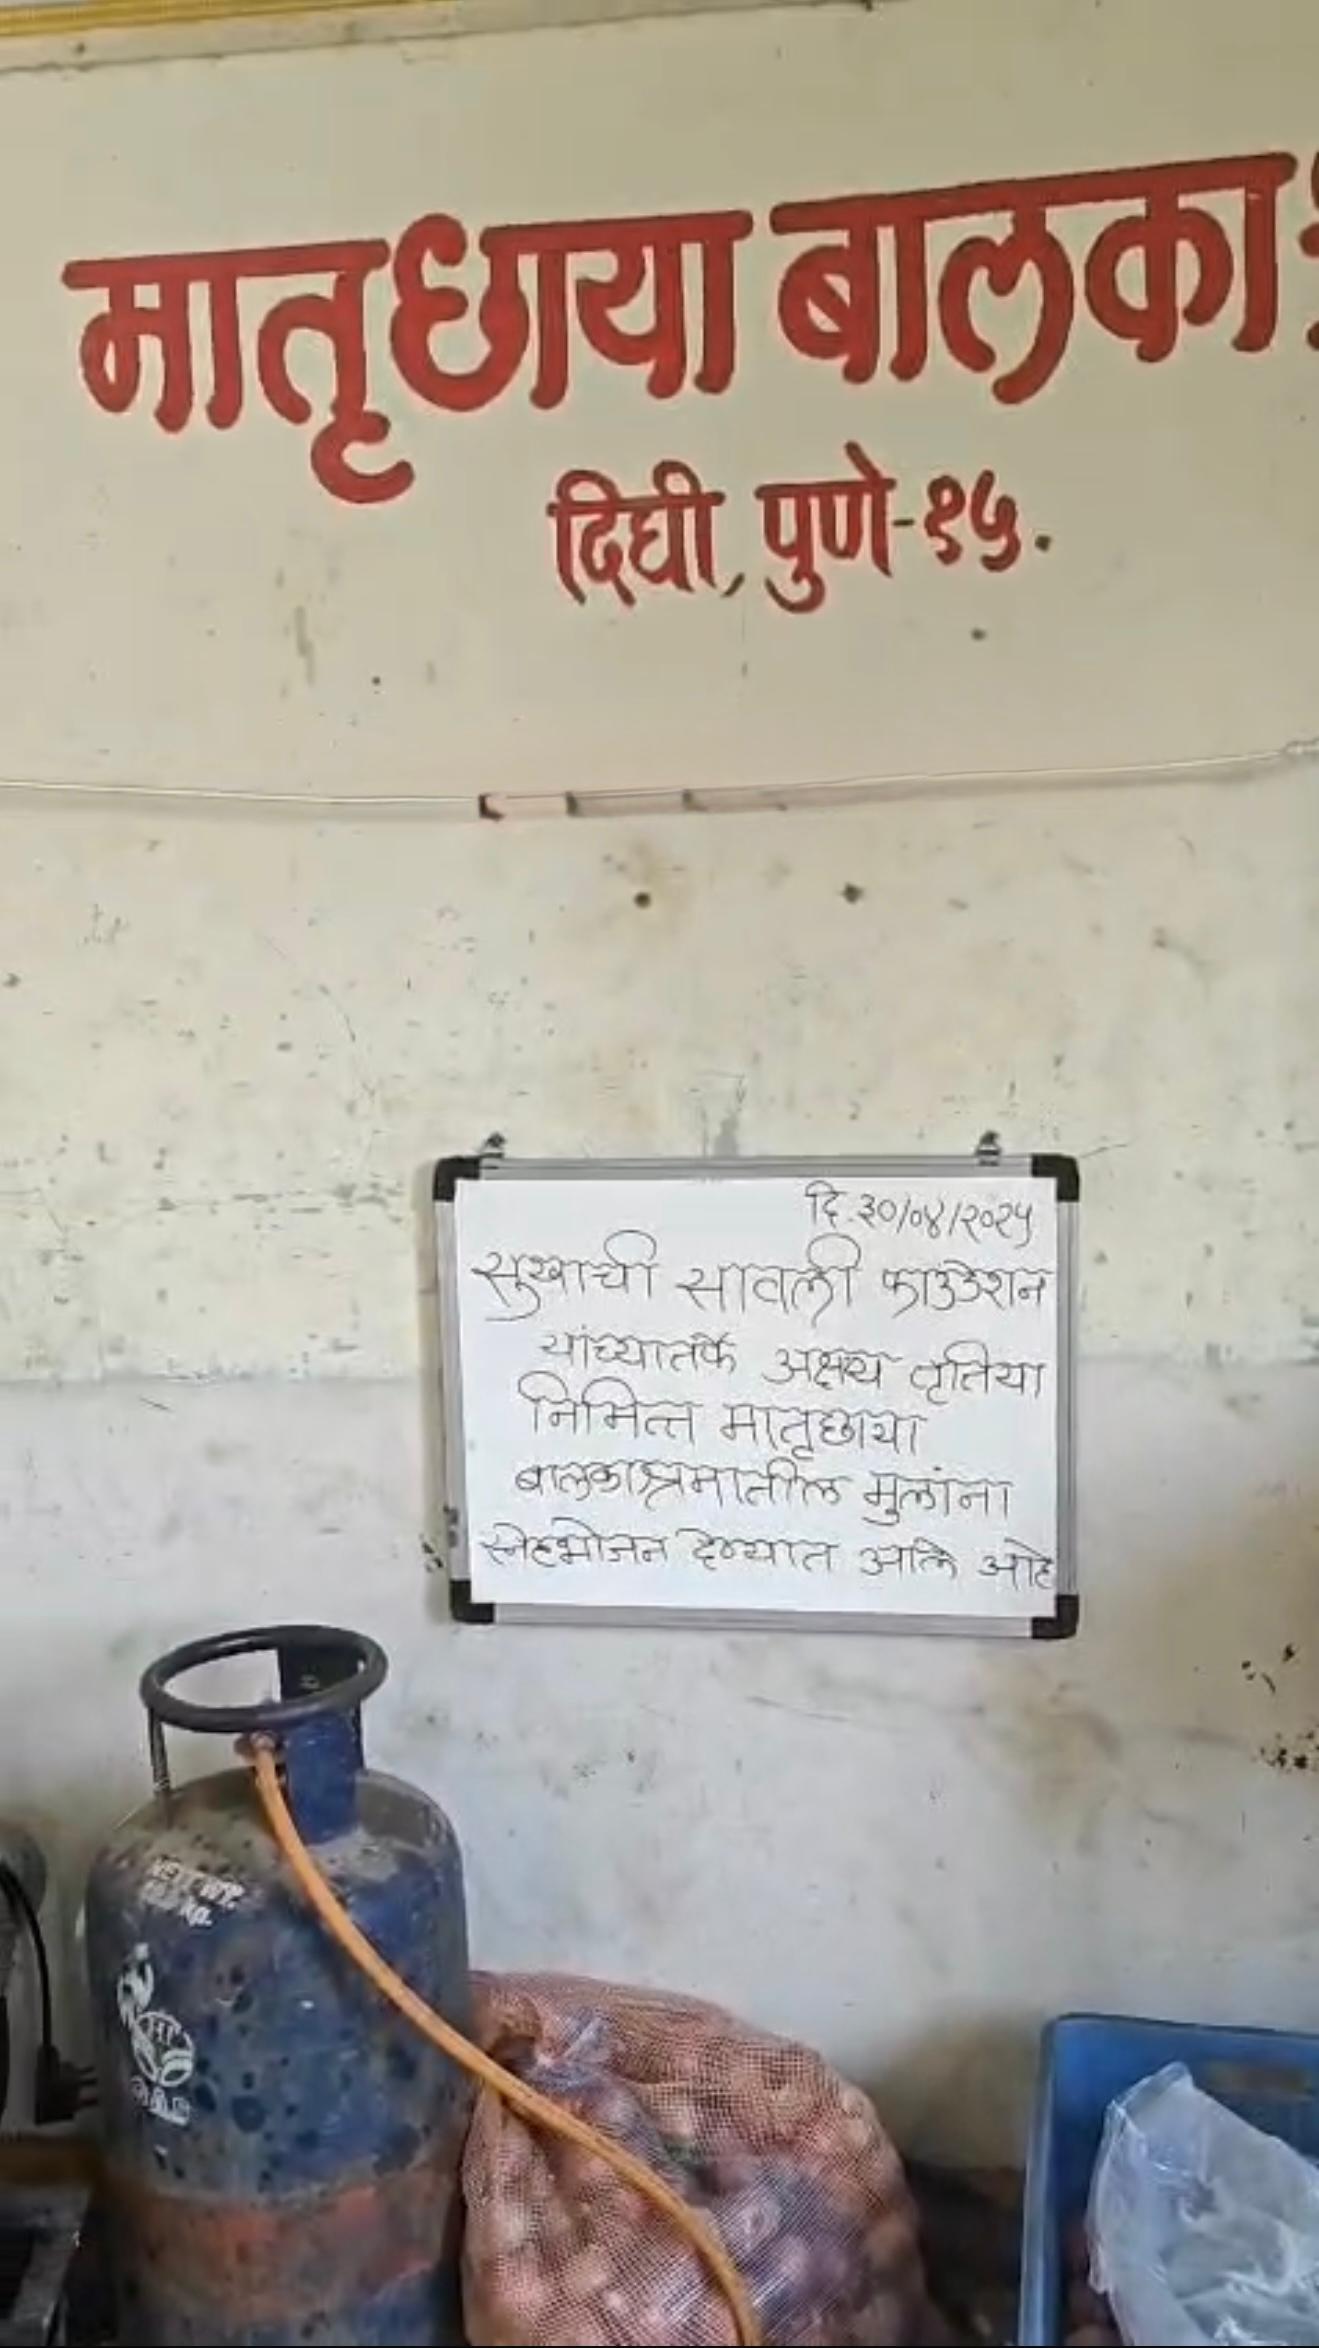 मातृछाया बालकाश्र
दिघी, पुणे-१५.
दि.३०/०४/२०२५
सुखाची सावली फाउंडेशन
यांच्यातर्फे अक्षय तृतिया
निमित्त मातृछाया
बालकाश्रमातील मुलांना
स्नेहभोजन देण्यात आले आहे
NETT WT.
kg.
HP